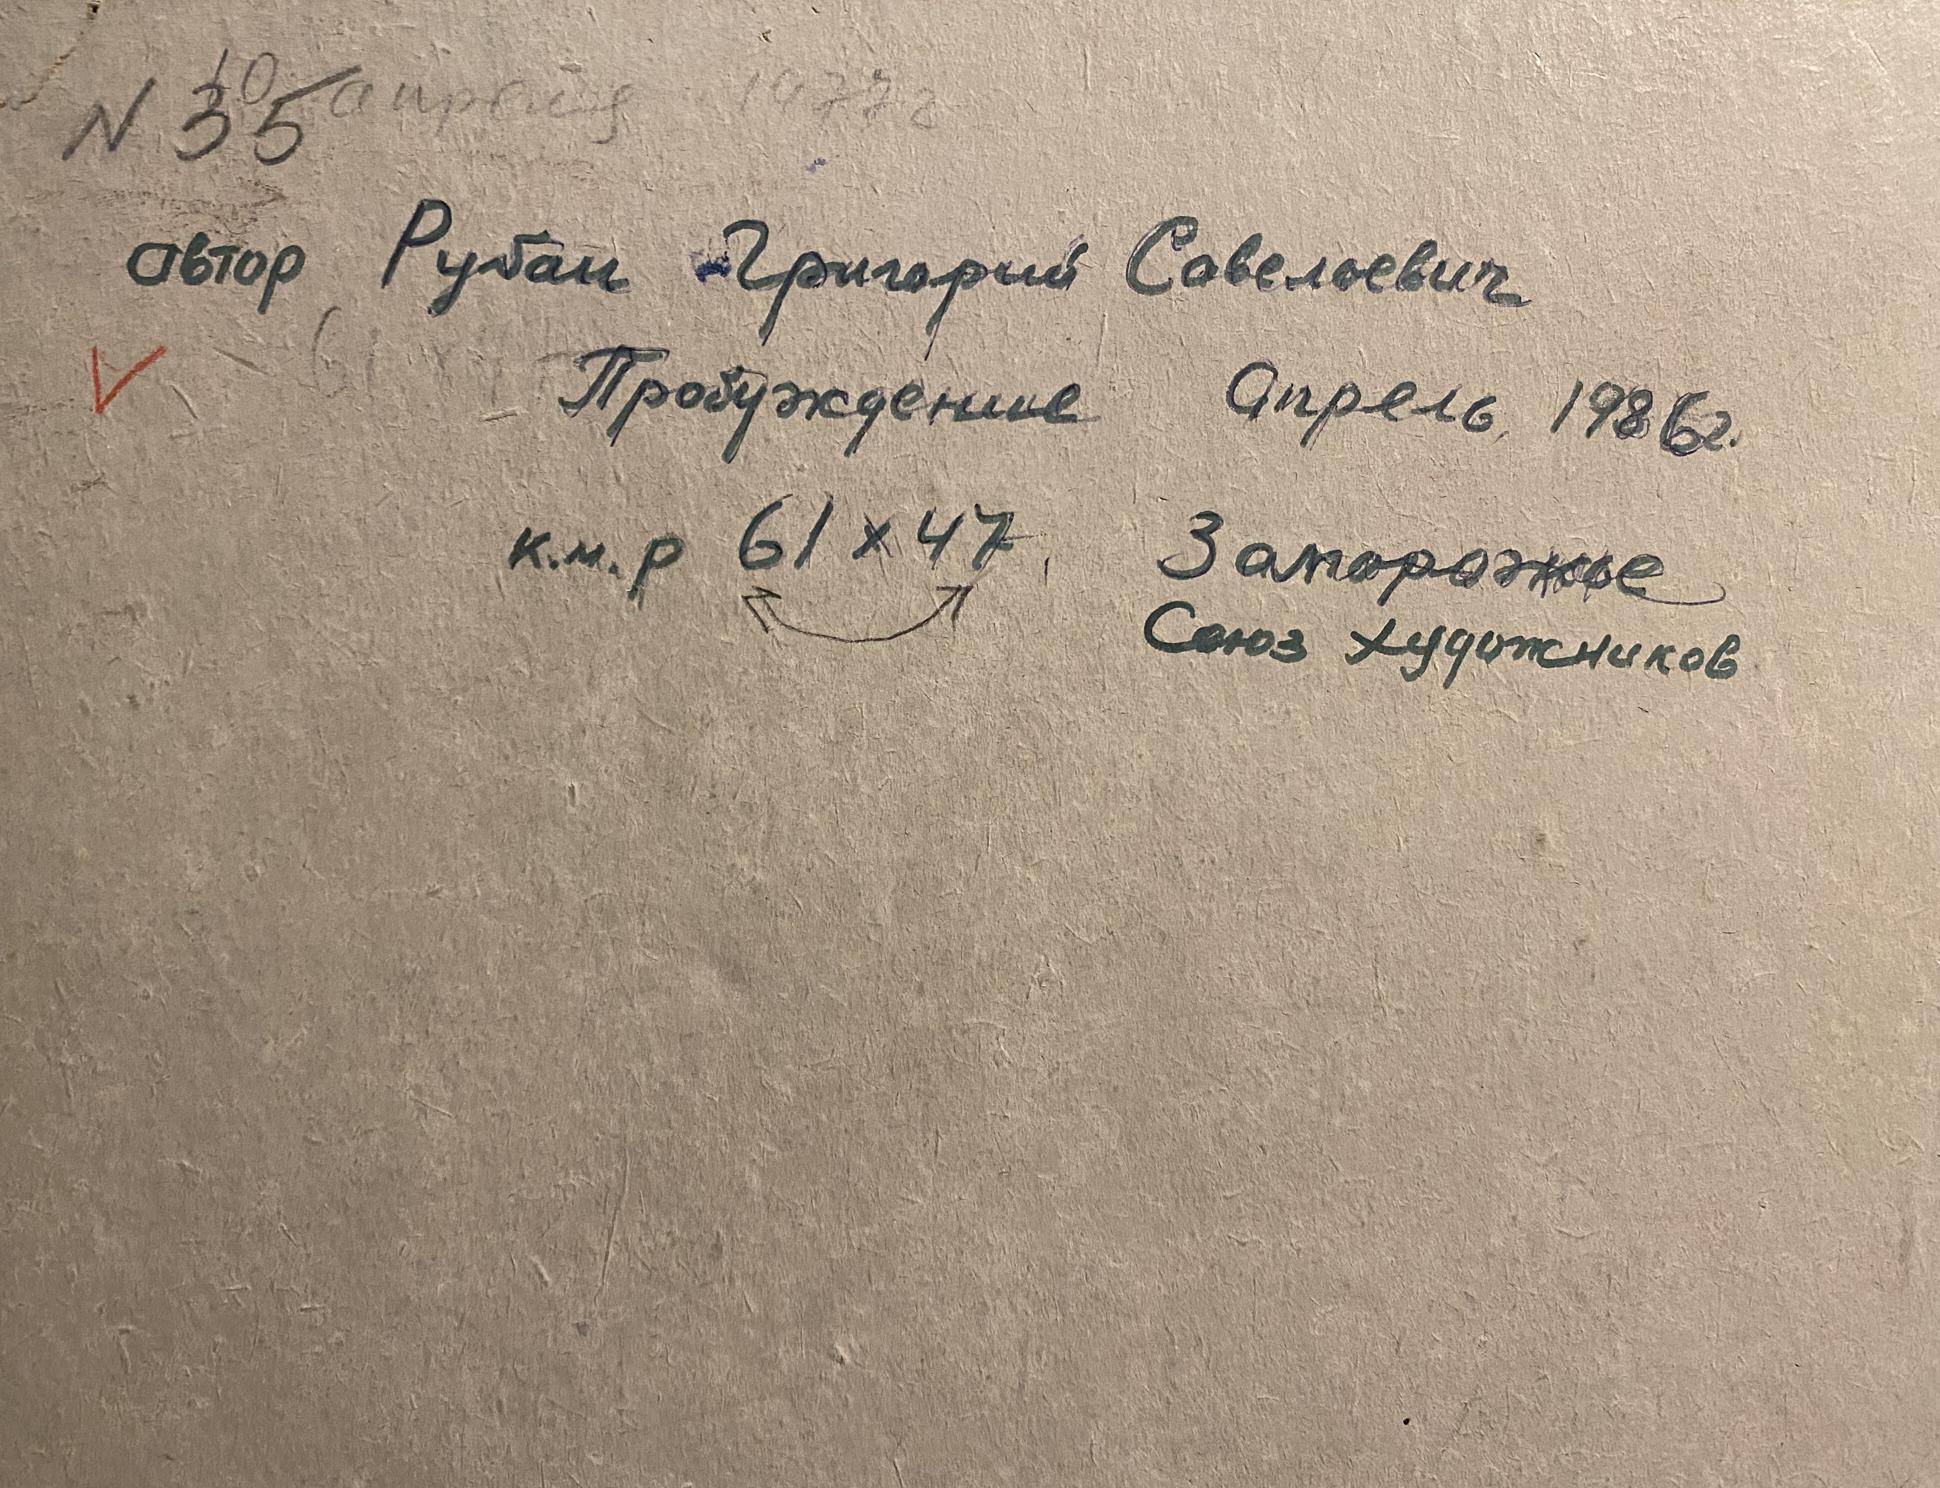 N 35
10 апреля 1977 г
автор Рубан Григорий Савельевич
Пробуждение Апрель, 1986г.
к.м.р 61 х 47, Запорожье
Союз художников